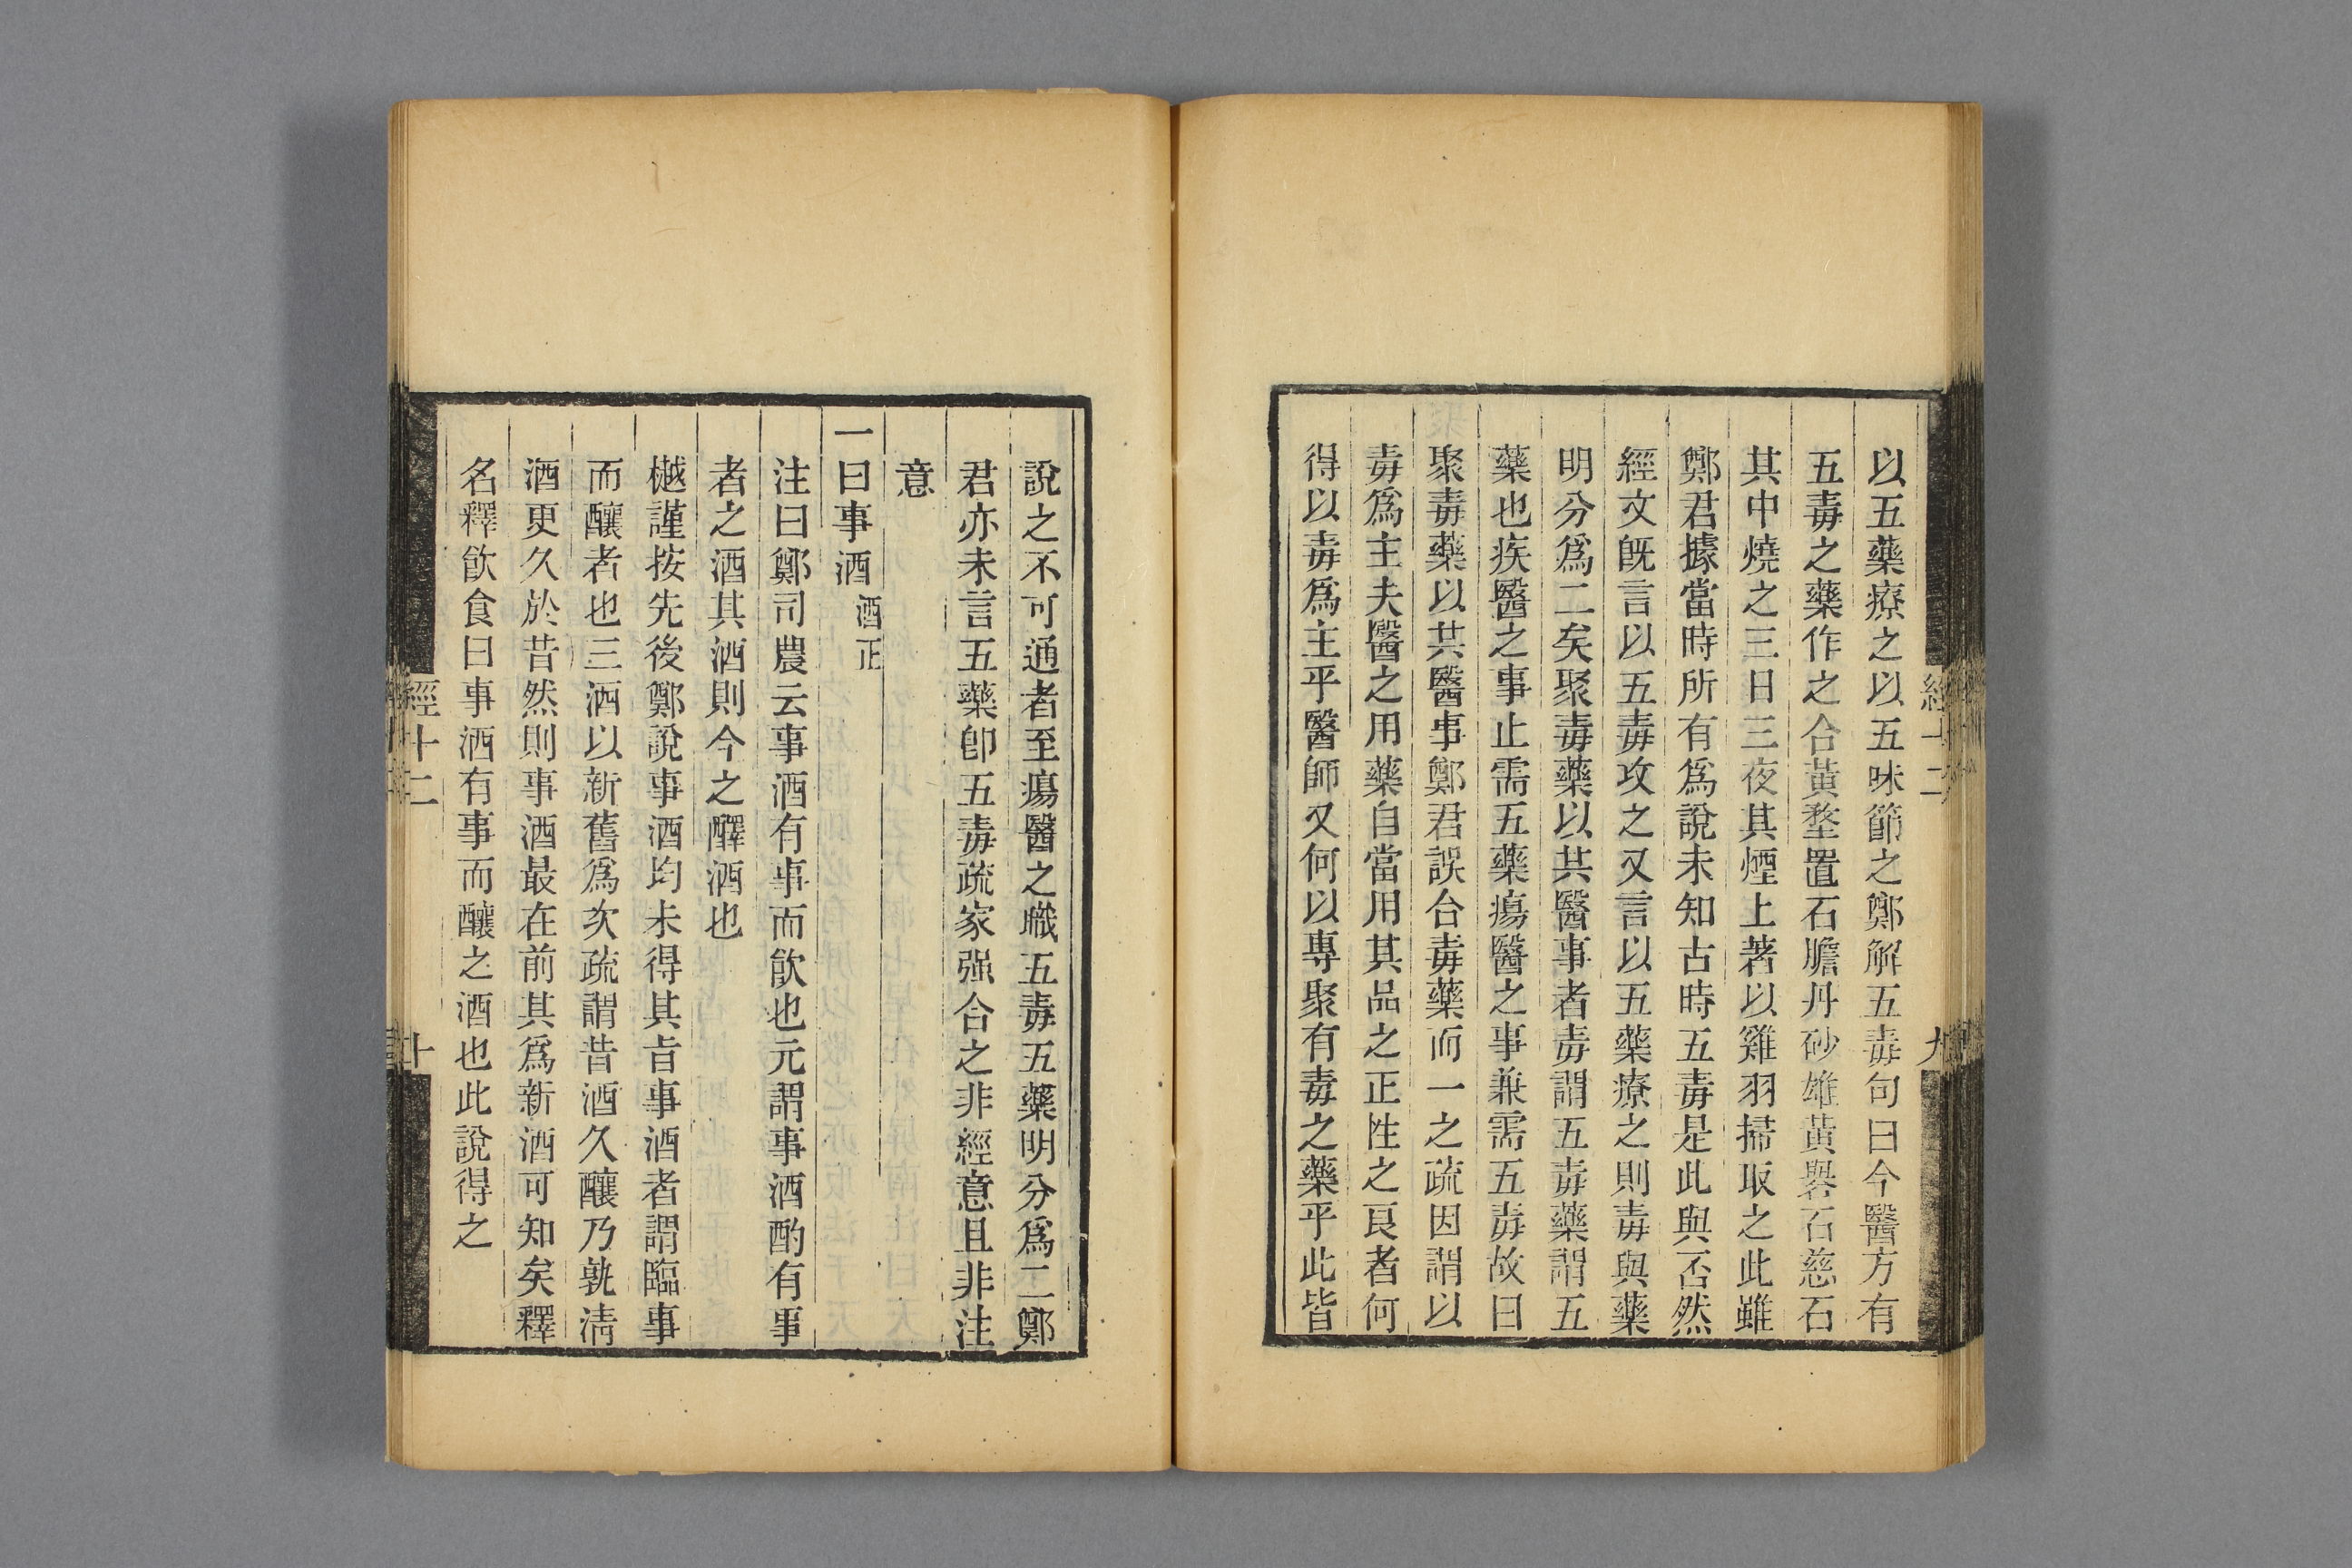 以五藥療之以五味節之鄭解五毒句曰今醫方有
五毒之藥作之合黃堥置石膽丹砂雄黃礜石慈石
其中燒之三日三夜其煙上著以雞羽掃取之此雖
鄭君據當時所有爲說未知古時五毒是此與否然
經文旣言以五毒攻之又言以五藥療之則毒與藥
明分爲二矣聚毒藥以共醫事者毒謂五毒藥謂五
藥也疾醫之事止需五藥瘍醫之事兼需五毒故曰
聚毒藥以共醫事鄭君誤合毒藥而一之疏因謂以
毒爲主夫醫之用藥自當用其品之正性之良者何
得以毒爲主乎醫師又何以專聚有毒之藥乎此皆
經十二
九
說之不可通者至瘍醫之職五毒五藥明分爲二鄭
君亦未言五藥卽五毒疏家强合之非經意且非注
意
一曰事酒 酒正
注曰鄭司農云事酒有事而飮也元謂事酒酌有事
者之酒其酒則今之醳酒也
樾謹按先後鄭說事酒均未得其旨事酒者謂臨事
而釀者也三酒以新舊爲次疏謂昔酒久釀乃孰淸
酒更久於昔然則事酒最在前其爲新酒可知矣釋
名釋飮食曰事酒有事而釀之酒也此說得之
經十二
十